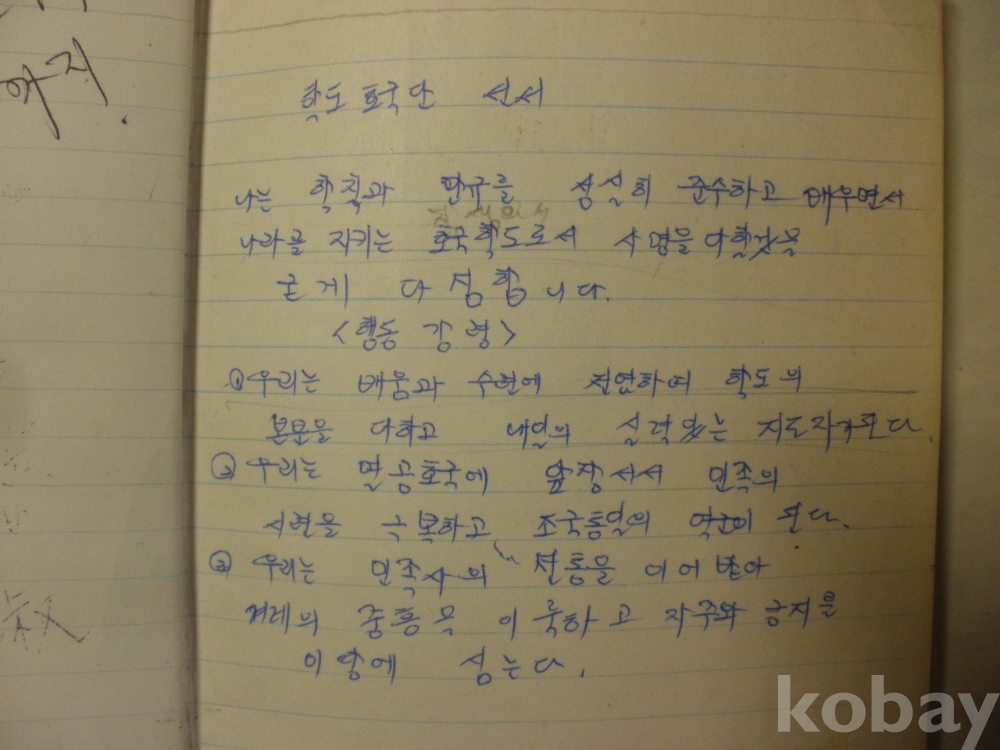 아지.
학도호국단 선서
나는 학칙과 단규를 성실히 준수하고 배우면서
나라를 지키는 호국학도로서 사명을 다할것을
굳게 다짐합니다.
<행동 강령>
① 우리는 배움과 수련에 전념하여 학도의
본분을 다하고 내일의 실력있는 지도자가 된다.
② 우리는 멸공호국에 앞장서서 민족의
시련을 극복하고 조국통일의 역군이 된다.
③ 우리는 민족사의 전통을 이어 받아
겨레의 중흥을 이룩하고 자주와 긍지를
이 땅에 심는다.
kobay